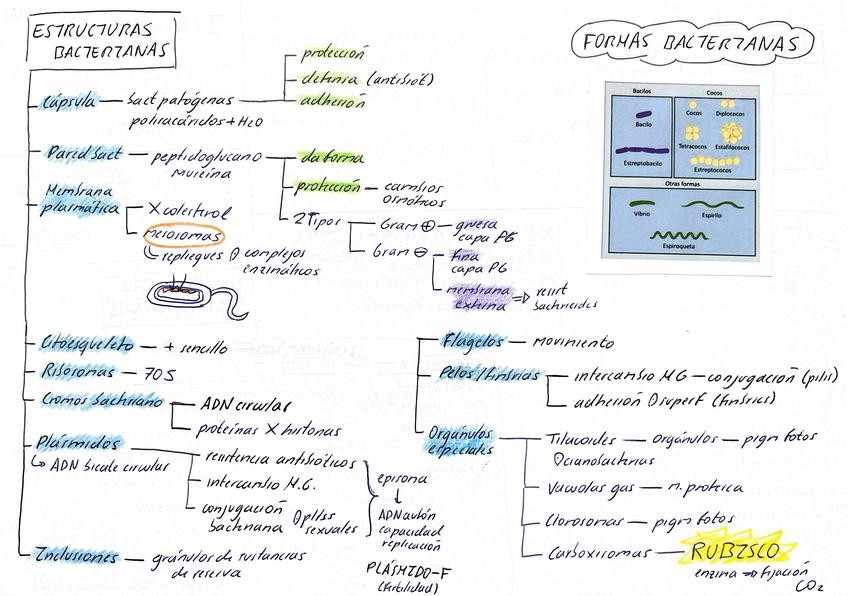 ESTRUCTURAS
BACTERIANAS
Cápsula — bact patógenas
polisacáridos + H2O
protección
defensa (antibiót)
adhesión
Pared bact — peptidoglucano
mureína
da forma
protección — cambios
osmóticos
2 Tipos
Gram ⊕ — gruesa
capa PG
Gram ⊖
fina
capa PG
membrana
externa ⇒ resist
bactericidas
Membrana
plasmática
X colesterol
mesosomas
repliegues complejos
enzimáticos
Citoesqueleto — + sencillo
Ribosomas — 70S
Cromos bacteriano
ADN circular
proteínas X histonas
Plásmidos
↳ ADN bicate circular
resistencia antibióticos
intercambio M.G.
conjugación
bacteriana
pilis
sexuales
episoma
↓
ADN autón
capacidad
replicación
PLÁSMIDO-F
(fertilidad)
Inclusiones — gránulos de sustancias
de reserva
FORMAS BACTERIANAS
Bacilos
Cocos
Bacilo
Estreptobacilo
Cocos
Diplococos
Tetracocos
Estafilococos
Estreptococos
Otras formas
Vibrio
Espirilo
Espiroqueta
Flagelos — movimiento
Pelos/fimbrias
intercambio MG — conjugación (pilis)
adhesión superf (fimbrias)
Orgánulos
especiales
Tilacoides — orgánulos — pigm fotos
cianobacterias
Vacuolas gas — m. proteica
Clorosomas — pigm fotos
Carboxisomas — RUBISCO
enzima ⇒ fijación
CO2